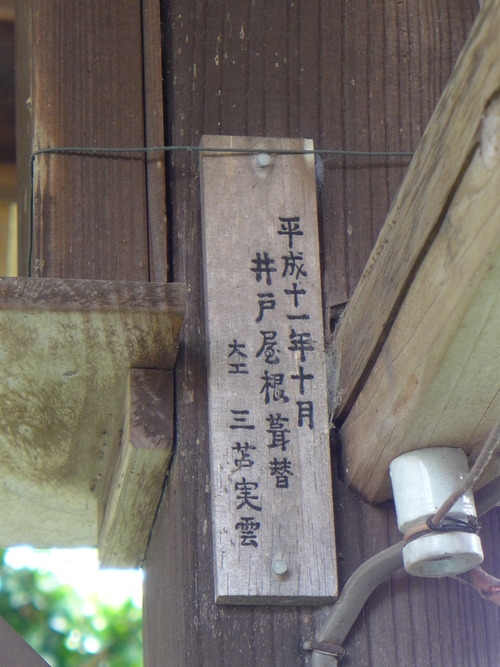 平成十一年十月
井戸屋根葺替
大工 三芦実雲